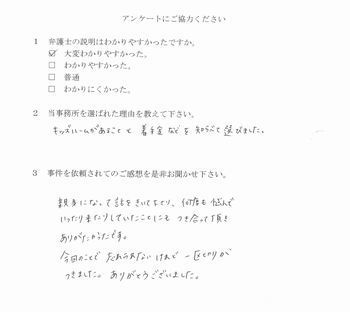 アンケートにご協力ください
1 弁護士の説明はわかりやすかったですか。
☑ 大変わかりやすかった。
☐ わかりやすかった。
☐ 普通
☐ わかりにくかった。
2 当事務所を選ばれた理由を教えて下さい。
キッズルームがあることと着手金などを知らべて選びました。
3 事件を依頼されてのご感想を是非お聞かせ下さい。
親身になって話をきいて下さり、何度も悩んで
いったり来たりしていたことにもつき合って頂き
ありがたかったです。
今回のことで 忘れられない けれど 一区切りが
つきました。ありがとうございました。